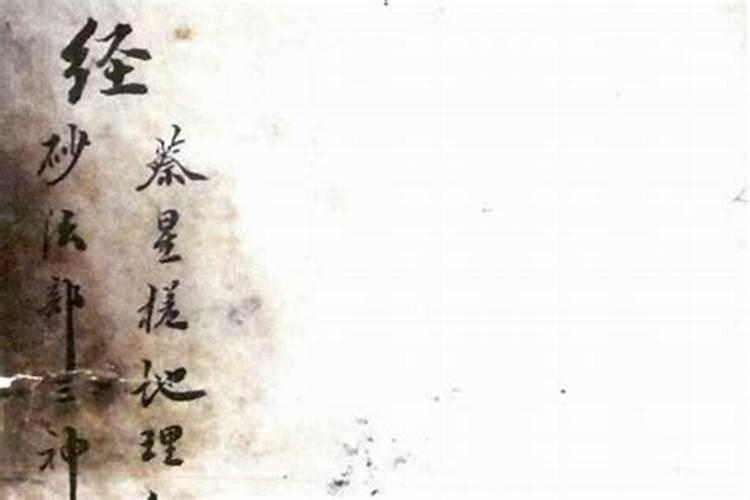 经
蔡星槎地理
砂法部三神